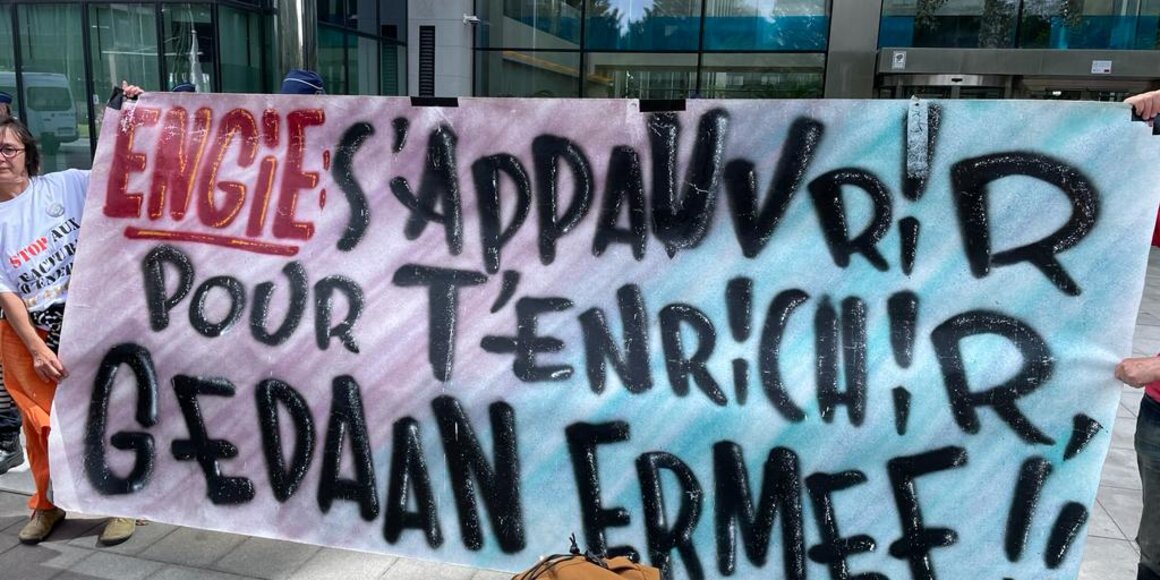 ENGiE: S'APPAUVRiR
POUR T'ENRiCHiR
GEDAAN ERMEE!!
STOP AUX